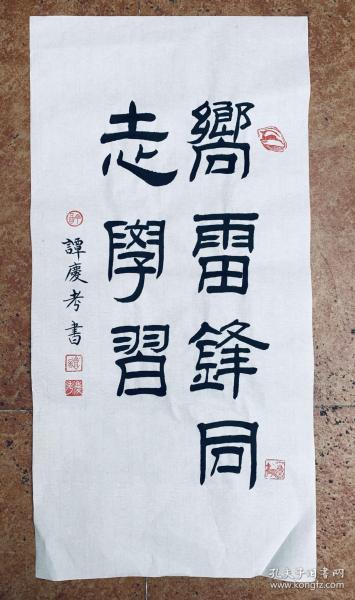 嚮雷鋒同
志學習
譚慶孝書
孔夫子旧书网
www.kongfz.com